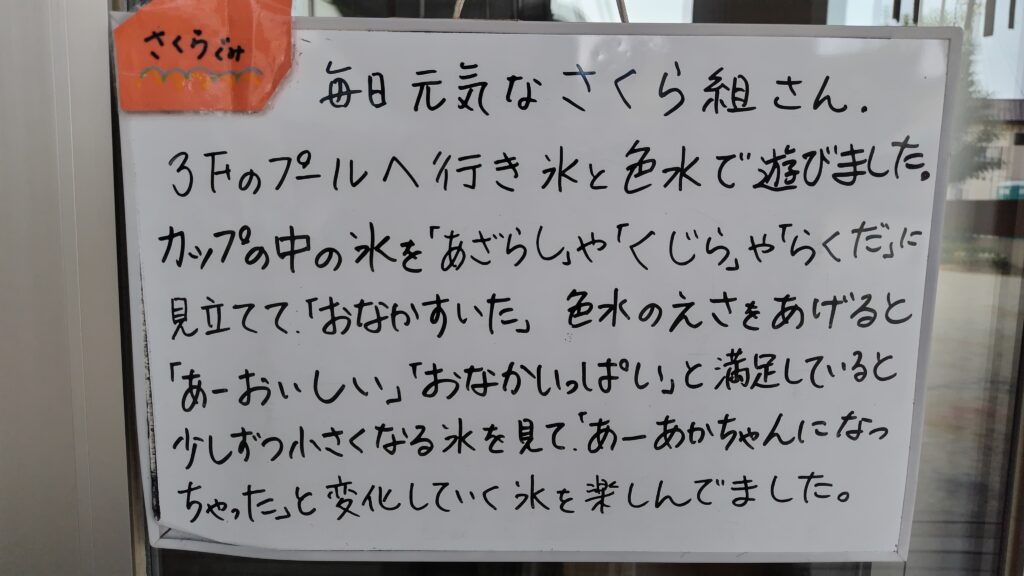 さくらぐみ
毎日元気なさくら組さん.
3Fのプールへ行き氷と色水で遊びました。
カップの中の氷を「あざらし」や「くじら」や「らくだ」に
見立てて、「おなかすいた」 色水のえさをあげると
「あーおいしい」「おなかいっぱい」と満足していると
少しずつ小さくなる氷を見て、「あーあかちゃんになっ
ちゃった」と変化していく氷を楽しんでました。